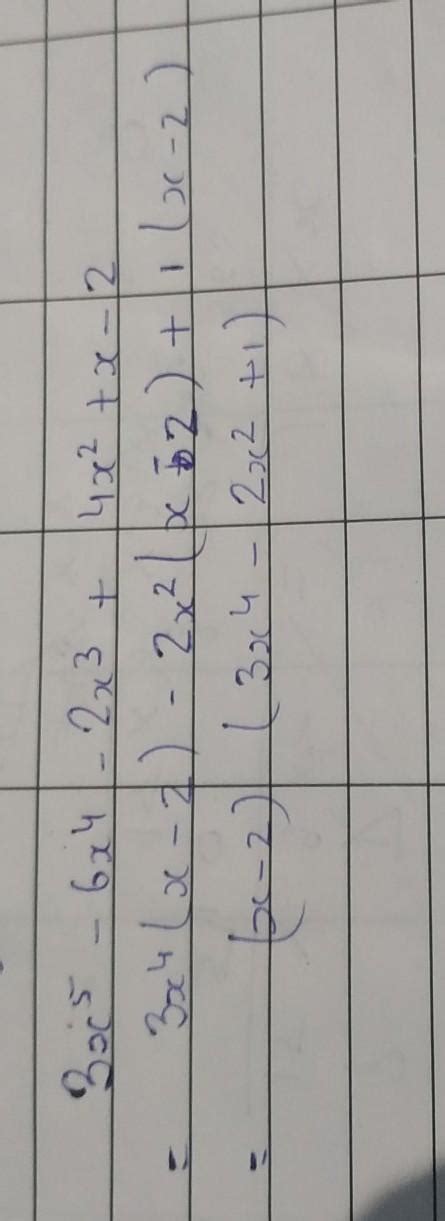 3x⁵ - 6x⁴ - 2x³ + 4x² + x - 2
= 3x⁴(x - 2) - 2x²(x - 2) + 1(x - 2)
= (x - 2) (3x⁴ - 2x² + 1)